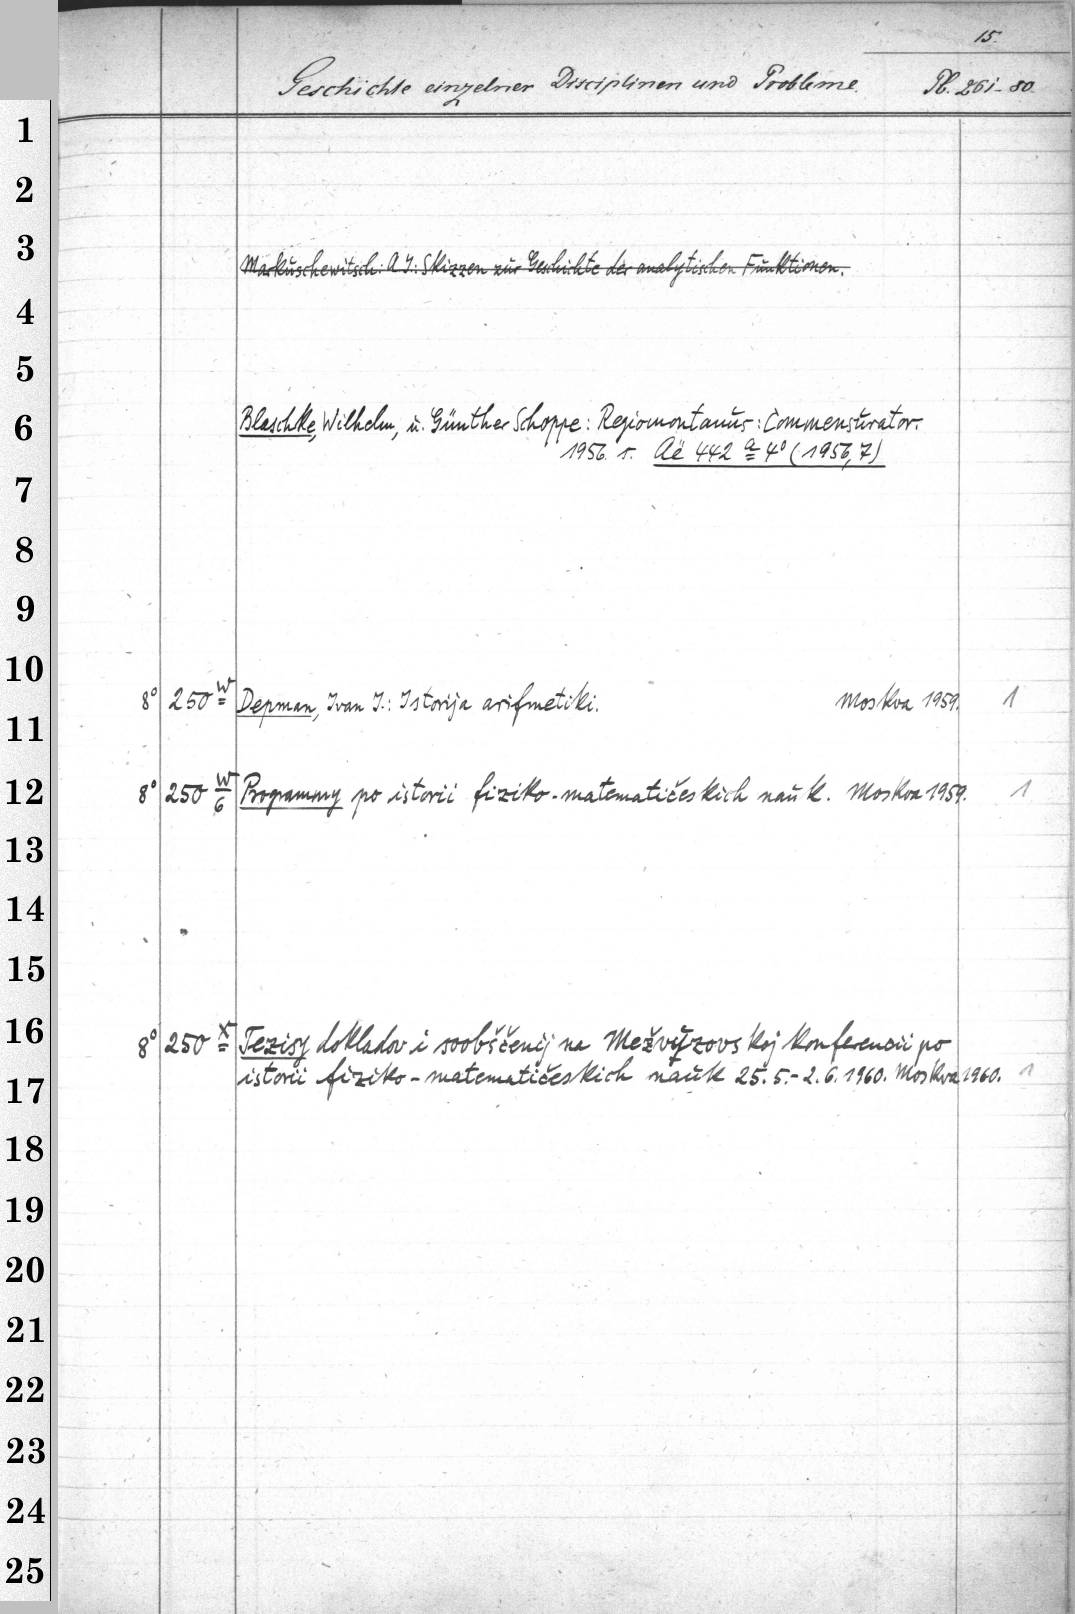 15.
Geschichte einzelner Disciplinen und Probleme. Pb. 261-80.
1
2
3
Markuschewitsch: A J: Skizzen zur Geschichte der analytischen Funktionen.
4
5
6
Blaschke, Wilhelm, u. Günther Schoppe: Regiomontanus: Commensurator.
1956. s. Aë 442 a 4° (1956,7)
7
8
9
10
8° 250 w Depman, Ivan J.: Istorija arifmetiki. Moskva 1959. 1
11
12
8° 250 w/6 Programmy po istorii fiziko-matematičeskich nauk. Moskva 1959. 1
13
14
15
16
8° 250 x Tezisy dokladov i soobščenij na Mežvuzovskoj konferencii po
istorii fiziko-matematičeskich nauk 25.5.-2.6.1960. Moskva 1960. 1
17
18
19
20
21
22
23
24
25